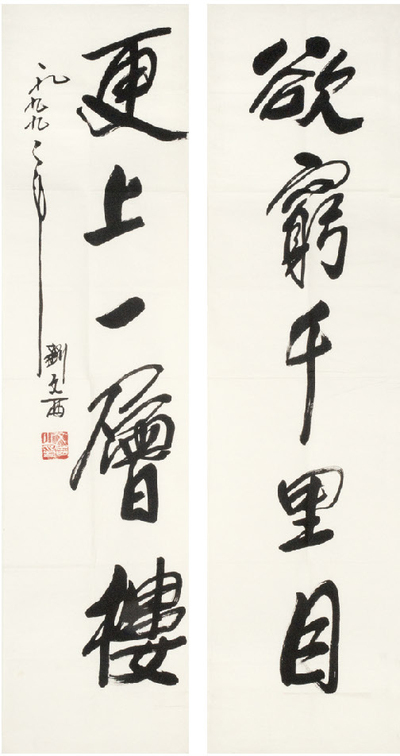 欲窮千里目
更上一層樓
一九九九年 劉文西